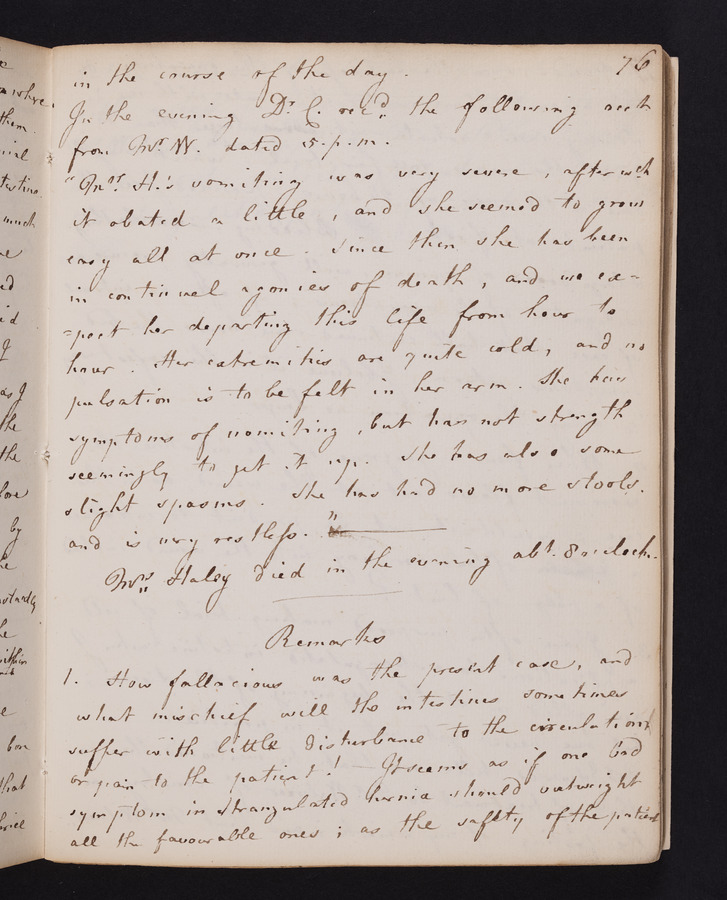 76
in the course of the day.
In the evening Dr. C. rec'd. the following acct
from Mr. W. dated 5. p. m.
"Mrs. H.'s vomiting was very severe, after wch
it abated a little, and she seemed to grow
easy all at once. Since then she has been
in continual agonies of death, and we ex=
=pect her departing this life from hour to
hour. Her extremities are quite cold, and no
pulsation is to be felt in her arm. She has
symptoms of vomiting, but has not strength
seemingly to get it up. She has also some
slight spasms. She has had no more stools.
and is very restless."
Mrs. Haley died in the evening abt. 8 o'clock.
Remarks
1. How fallacious was the present case, and
what mischief will the intestines sometimes
suffer with little disturbance to the circulation
or pain to the patient! It seems as if one bad
symptom in strangulated hernia should outweigh
all the favourable ones; as the safety of the patient